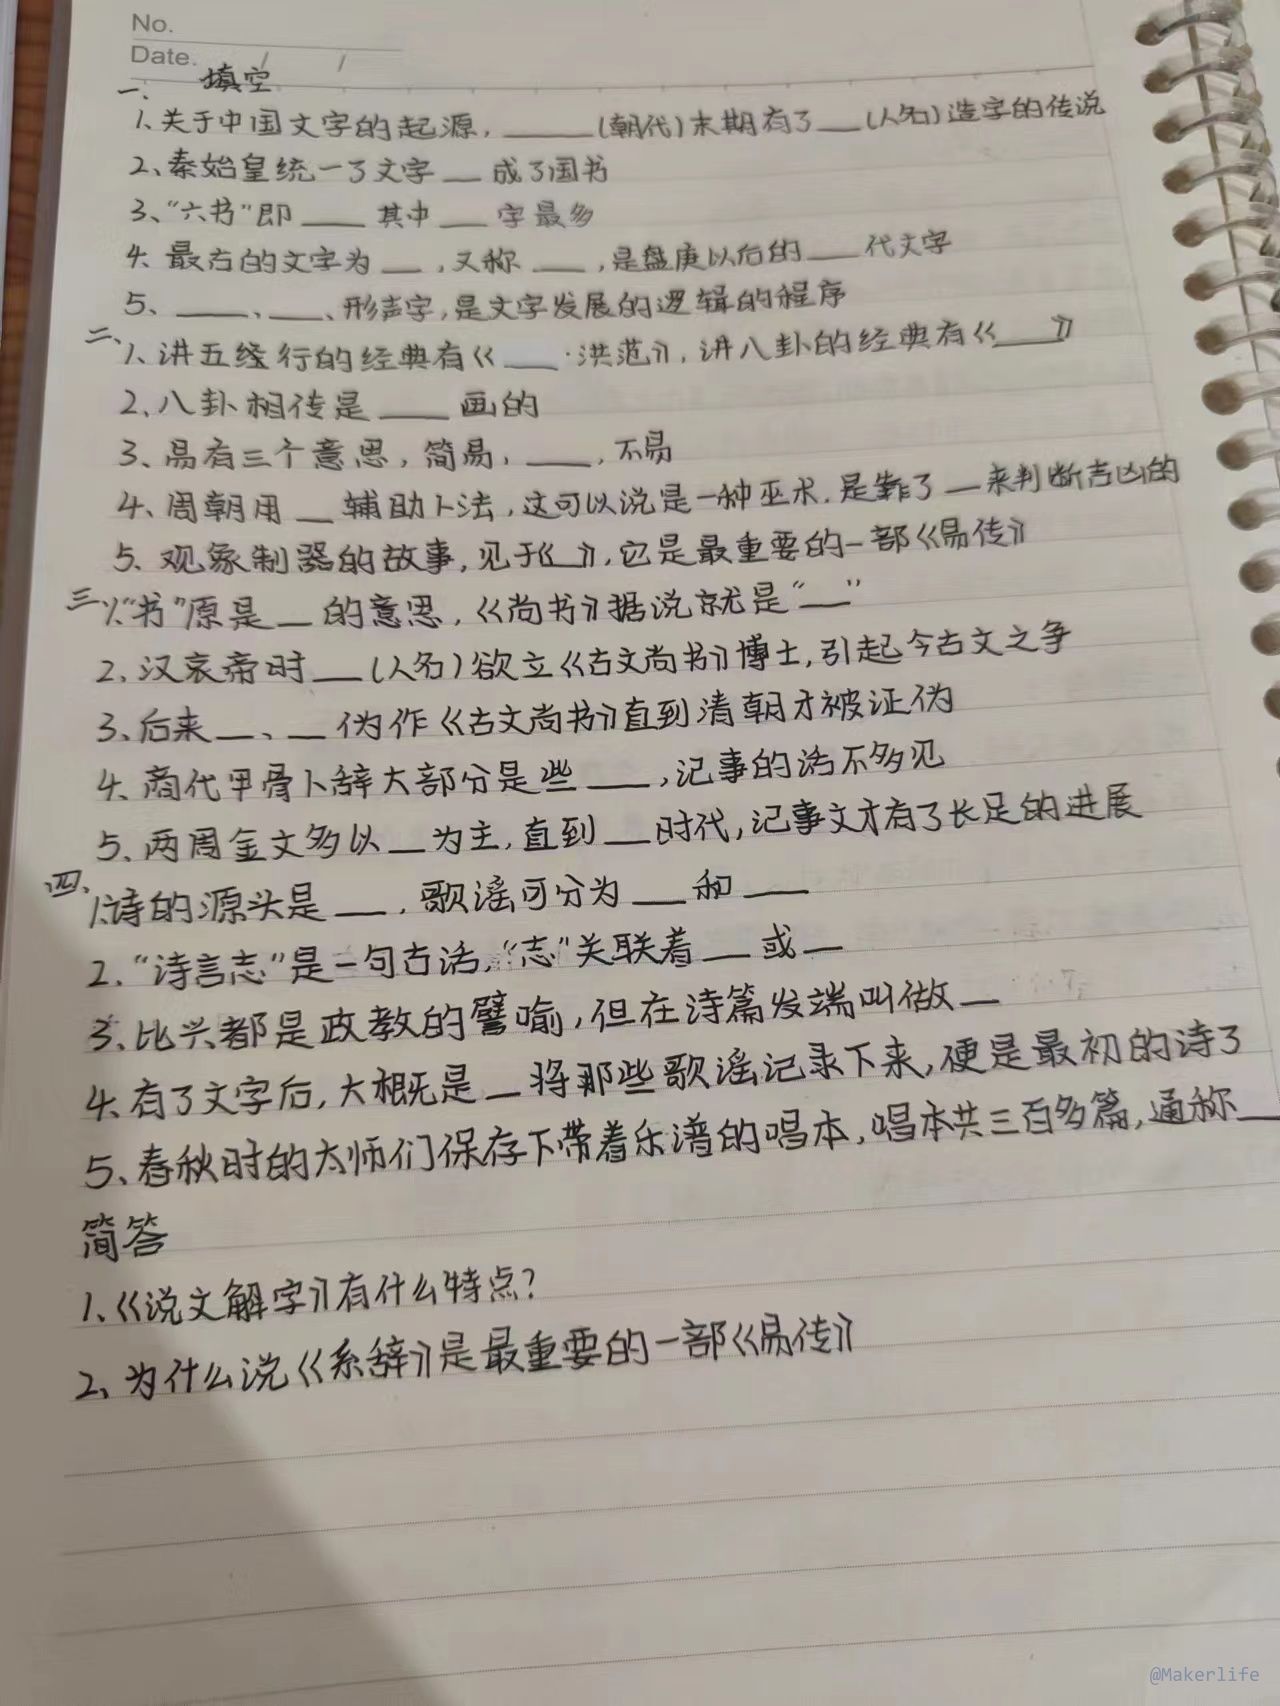 No.
Date. / /
填空
一、
1、关于中国文字的起源，____(朝代)末期有了__(人名)造字的传说
2、秦始皇统一了文字__成了国书
3、"六书"即___其中__字最多
4、最古的文字为__，又称__，是盘庚以后的__代文字
5、___、__、形声字，是文字发展的逻辑的程序
二、1、讲五行的经典有《__·洪范》，讲八卦的经典有《___》
2、八卦相传是___画的
3、易有三个意思，简易，___，不易
4、周朝用__辅助卜法，这可以说是一种巫术，是靠了__来判断吉凶的
5、观象制器的故事，见于《_》，它是最重要的一部《易传》
三、1、"书"原是__的意思，《尚书》据说就是"__"
2、汉哀帝时__(人名)欲立《古文尚书》博士，引起今古文之争
3、后来__、__伪作《古文尚书》直到清朝才被证伪
4、商代甲骨卜辞大部分是些___，记事的话不多见
5、两周金文多以__为主，直到__时代，记事文才有了长足的进展
四、1、诗的源头是___，歌谣可分为___和___
2、"诗言志"是一句古话，"志"关联着__或__
3、比兴都是政教的譬喻，但在诗篇发端叫做__
4、有了文字后，大概是__将那些歌谣记录下来，便是最初的诗了
5、春秋时的太师们保存下带着乐谱的唱本，唱本共三百多篇，通称__
简答
1、《说文解字》有什么特点？
2、为什么说《系辞》是最重要的一部《易传》
@Makerlife